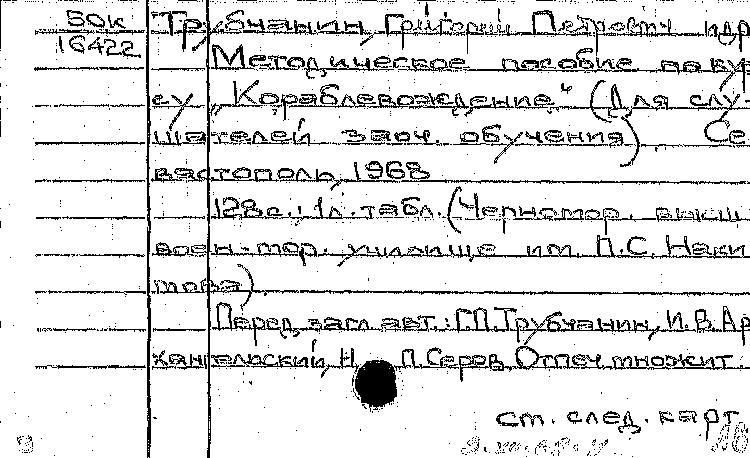 50к
16422
Трубчанин, Григорий Петрович и др
Методическое пособие по кур
су „Кораблевождение“ (Для слу-
шателей заоч. обучения). Се
вастополь, 1968
128 с.; 1 л. табл. (Черномор. высш
воен-мор. училище им. П.С. Нахи
мова).
Перед загл. авт.: Г.П. Трубчанин, И.В. Ар
хангельский, Н. П. Серов. Отпеч. множит.
см. след. карт